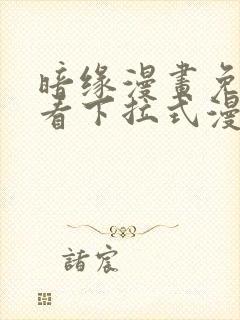 暗缘漫畫免
看下拉式漫
諸宸